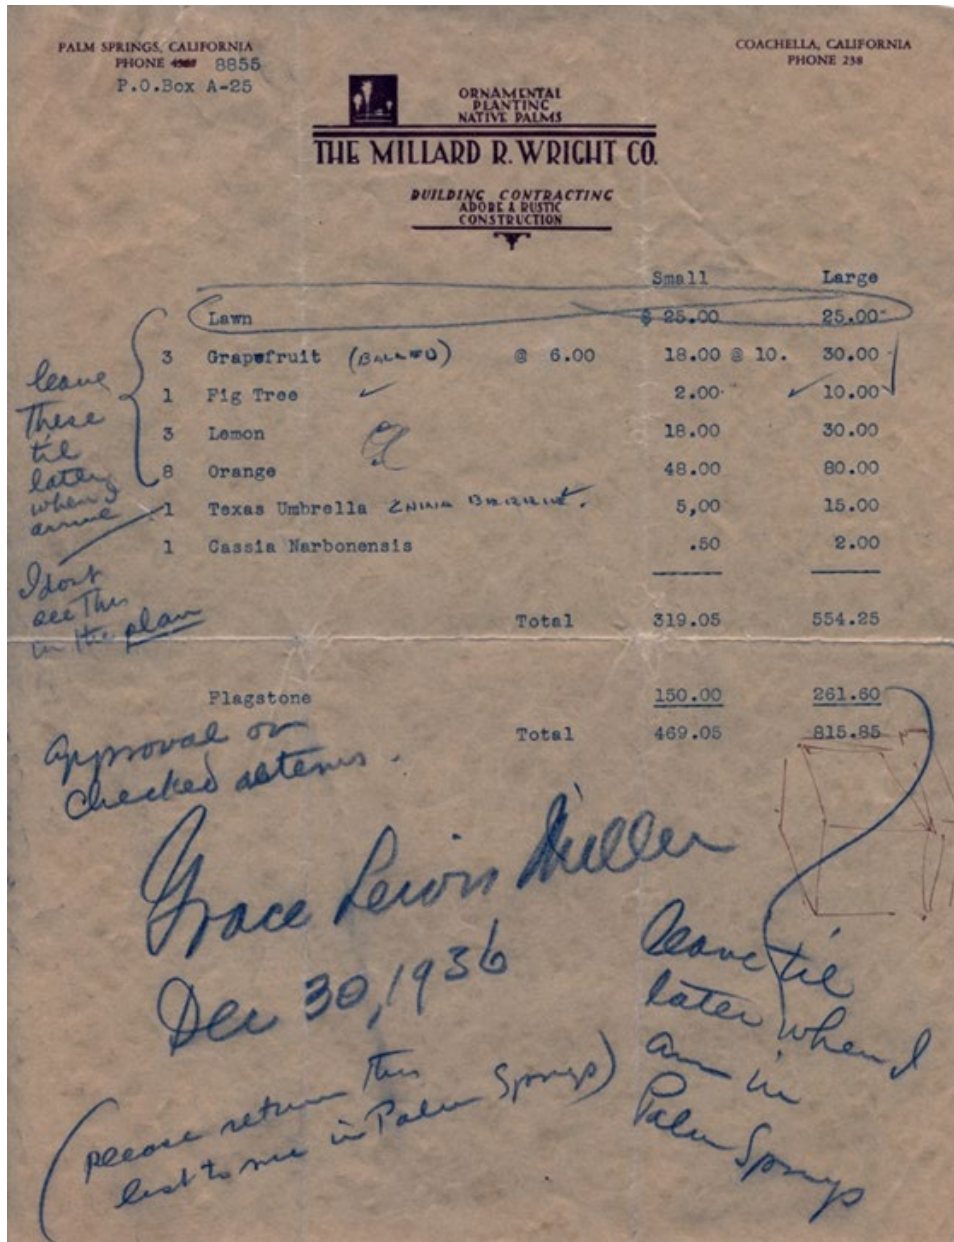 PALM SPRINGS, CALIFORNIA
PHONE 8855
P.O.Box A-25
COACHELLA, CALIFORNIA
PHONE 238
ORNAMENTAL
PLANTING
NATIVE PALMS
THE MILLARD R. WRIGHT CO.
BUILDING CONTRACTING
ADOBE & RUSTIC
CONSTRUCTION
Small Large
Lawn $ 25.00 25.00
3 Grapefruit (BALLED) @ 6.00 18.00 @ 10. 30.00
1 Fig Tree 2.00 10.00
3 Lemon 18.00 30.00
8 Orange 48.00 80.00
1 Texas Umbrella 5,00 15.00
1 Cassia Narbonensis .50 2.00
Total 319.05 554.25
Flagstone 150.00 261.60
Total 469.05 815.85
leave
these
til
later
when I
arrive
I dont
see this
in the plan
approval on
checked items.
Grace Lewis Miller
Dec 30, 1936
leave til
later when I
am in
Palm Springs
(please return this
list to me in Palm Springs)